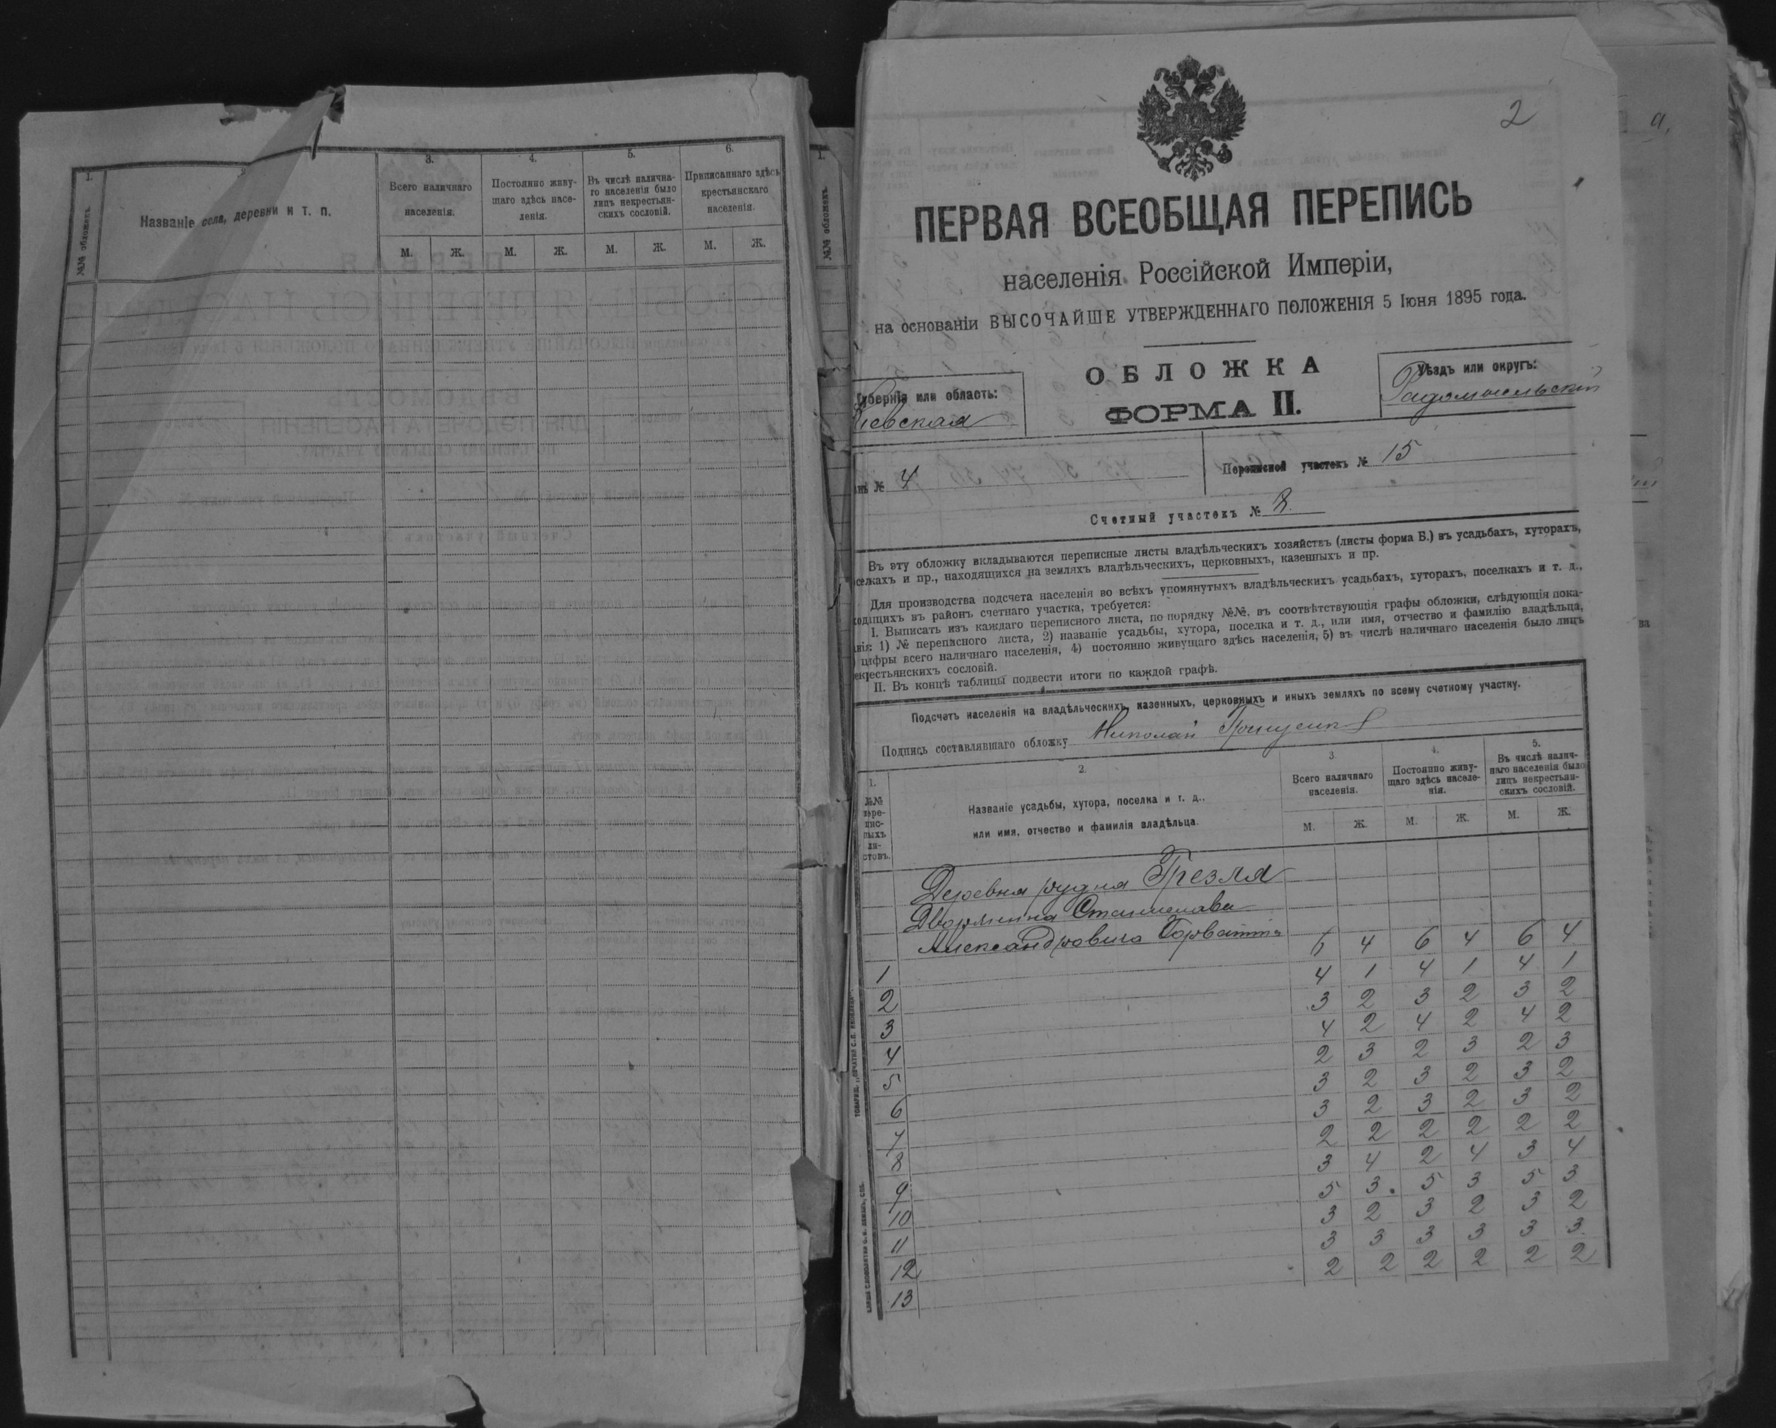 1.
3.
4.
5.
6.
№№ обложекъ.
Названіе села, деревни и т. п.
Всего наличнаго населенія.
Постоянно живу-
щаго здѣсь насе-
ленія.
Въ числѣ налична-
го населенія было
лицъ некрестьян-
скихъ сословій.
Приписаннаго здѣсь
крестьянскаго
населенія.
М. Ж. М. Ж. М. Ж. М. Ж.
1.
№№ обложекъ
2
ПЕРВАЯ ВСЕОБЩАЯ ПЕРЕПИСЬ
населенія Россійской Имперіи,
на основаніи ВЫСОЧАЙШЕ УТВЕРЖДЕННАГО ПОЛОЖЕНІЯ 5 Іюня 1895 года.
ОБЛОЖКА
ФОРМА II.
Губернія или область:
Кіевская
Уѣздъ или округъ:
Радомысльскій
№ 4
Переписной участокъ № 15
Счетный участокъ № 8.
Въ эту обложку вкладываются переписные листы владѣльческихъ хозяйствъ (листы форма Б.) въ усадьбахъ, хуторахъ,
поселкахъ и пр., находящихся на земляхъ владѣльческихъ, церковныхъ, казенныхъ и пр.
Для производства подсчета населенія во всѣхъ упомянутыхъ владѣльческихъ усадьбахъ, хуторахъ, поселкахъ и т. д.,
входящихъ въ районъ счетнаго участка, требуется:
I. Выписать изъ каждаго переписного листа, по порядку №№, въ соотвѣтствующія графы обложки, слѣдующія пока-
занія: 1) № переписного листа, 2) названіе усадьбы, хутора, поселка и т. д., или имя, отчество и фамилію владѣльца,
3) цифры всего наличнаго населенія, 4) постоянно живущаго здѣсь населенія, 5) въ числѣ наличнаго населенія было лицъ
некрестьянскихъ сословій.
II. Въ концѣ таблицы подвести итоги по каждой графѣ.
Подсчетъ населенія на владѣльческихъ, казенныхъ, церковныхъ и иныхъ земляхъ по всему счетному участку.
Подпись составлявшаго обложку Николай
1.
2.
3
4.
5.
№№
пере-
пис-
ныхъ
ли-
стовъ.
Названіе усадьбы, хутора, поселка и т. д.,
или имя, отчество и фамилія владѣльца.
Всего наличнаго
населенія.
Постоянно живу-
щаго здѣсь населе-
нія.
Въ числѣ налич-
наго населенія было
лицъ некрестьян-
скихъ сословій.
М. Ж. М. Ж. М. Ж.
Деревня рудня Грезля
Дворянина Станислава
Александровича Горватта
1 6 4 6 4 6 4
2 4 1 4 1 4 1
3 3 2 3 2 3 2
4 4 2 4 2 4 2
5 2 3 2 3 2 3
6 3 2 3 2 3 2
7 3 2 3 2 3 2
8 2 2 2 2 2 2
9 3 4 2 4 3 4
10 5 3 5 3 5 3
11 3 2 3 2 3 2
12 3 3 3 3 3 3
13 2 2 2 2 2 2